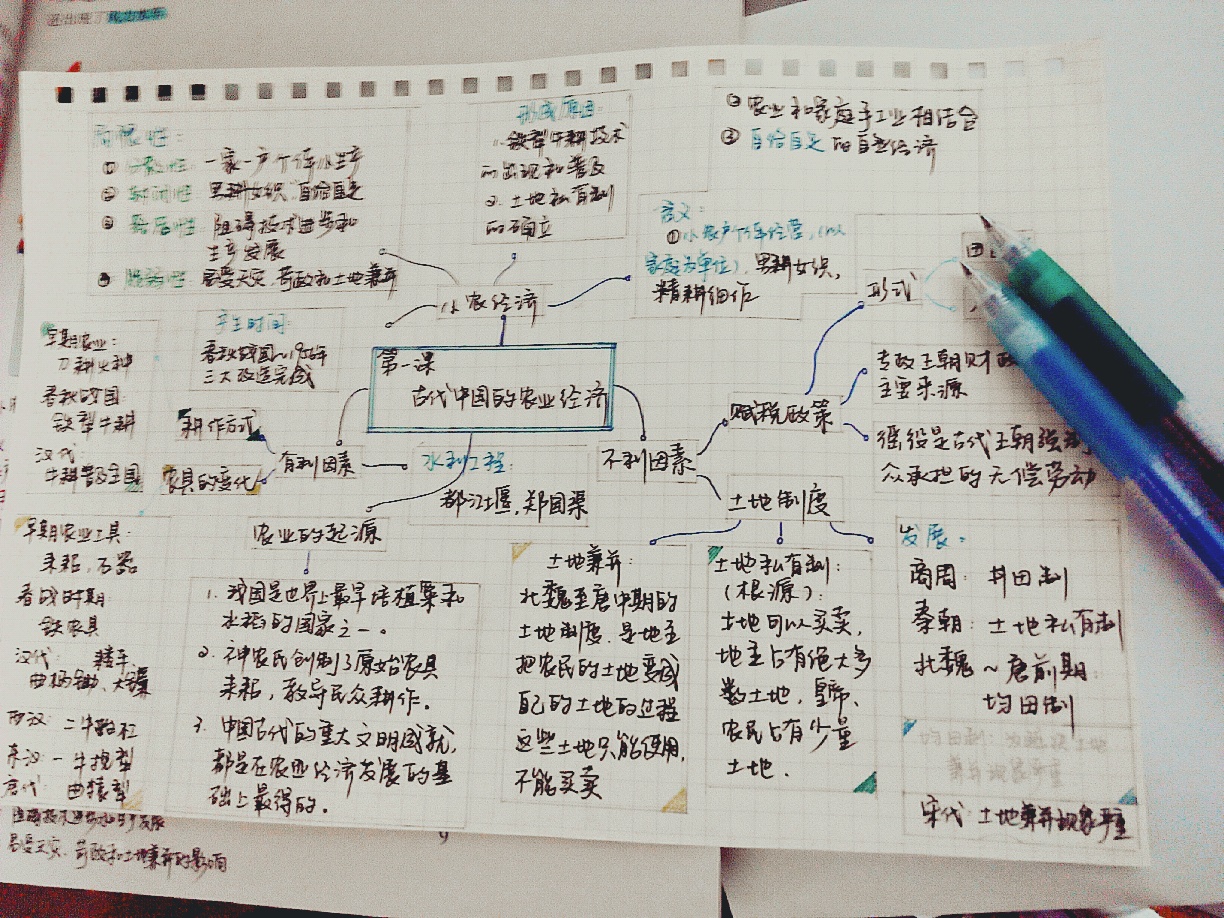 局限性：
① 分散性：一家一户个体小生产
② 封闭性：男耕女织，自给自足
③ 落后性：阻碍技术进步和
生产发展
④ 脆弱性：易受天灾，苛政和土地兼并
形成原因：
1. 铁犁牛耕技术
的出现和普及
2. 土地私有制
的确立
② 农业和家庭手工业相结合
③ 自给自足的自然经济
含义：
①小农户个体经营，（以
家庭为单位），男耕女织，
精耕细作
小农经济
产生时间：
春秋战国~1956年
三大改造完成
第一课
古代中国的农业经济
早期农业：
刀耕火种
春秋战国：
铁犁牛耕
汉代：
牛耕普及全国
耕作方式
农具的变化
有利因素
水利工程：
都江堰，郑国渠
不利因素
赋税政策
形式
专政王朝财政
主要来源
徭役是古代王朝强
众承担的无偿劳动
土地制度
农业的起源
1. 我国是世界上最早培植粟和
水稻的国家之一。
2. 神农氏创制了原始农具
耒耜，教导民众耕作。
3. 中国古代的重大文明成就，
都是在农业经济发展的基
础上最得的。
早期农业工具：
耒耜，石器
春战时期：
铁农具
汉代：耧车，
曲柄锄、大镰
西汉：二牛
东汉：一牛挽犁
唐代：曲辕犁
土地兼并：
北魏至唐中期的
土地制度．是地主
把农民的土地变成
自己的土地的过程
这些土地只能使用，
不能买卖
土地私有制：
（根源）：
土地可以买卖，
地主占有绝大多
数土地，皇帝、
农民占有少量
土地．
发展：
商周：井田制
秦朝：土地私有制
北魏~唐前期：
均田制
宋代：土地兼并现象严重
易受天灾、苛政和土地兼并的影响